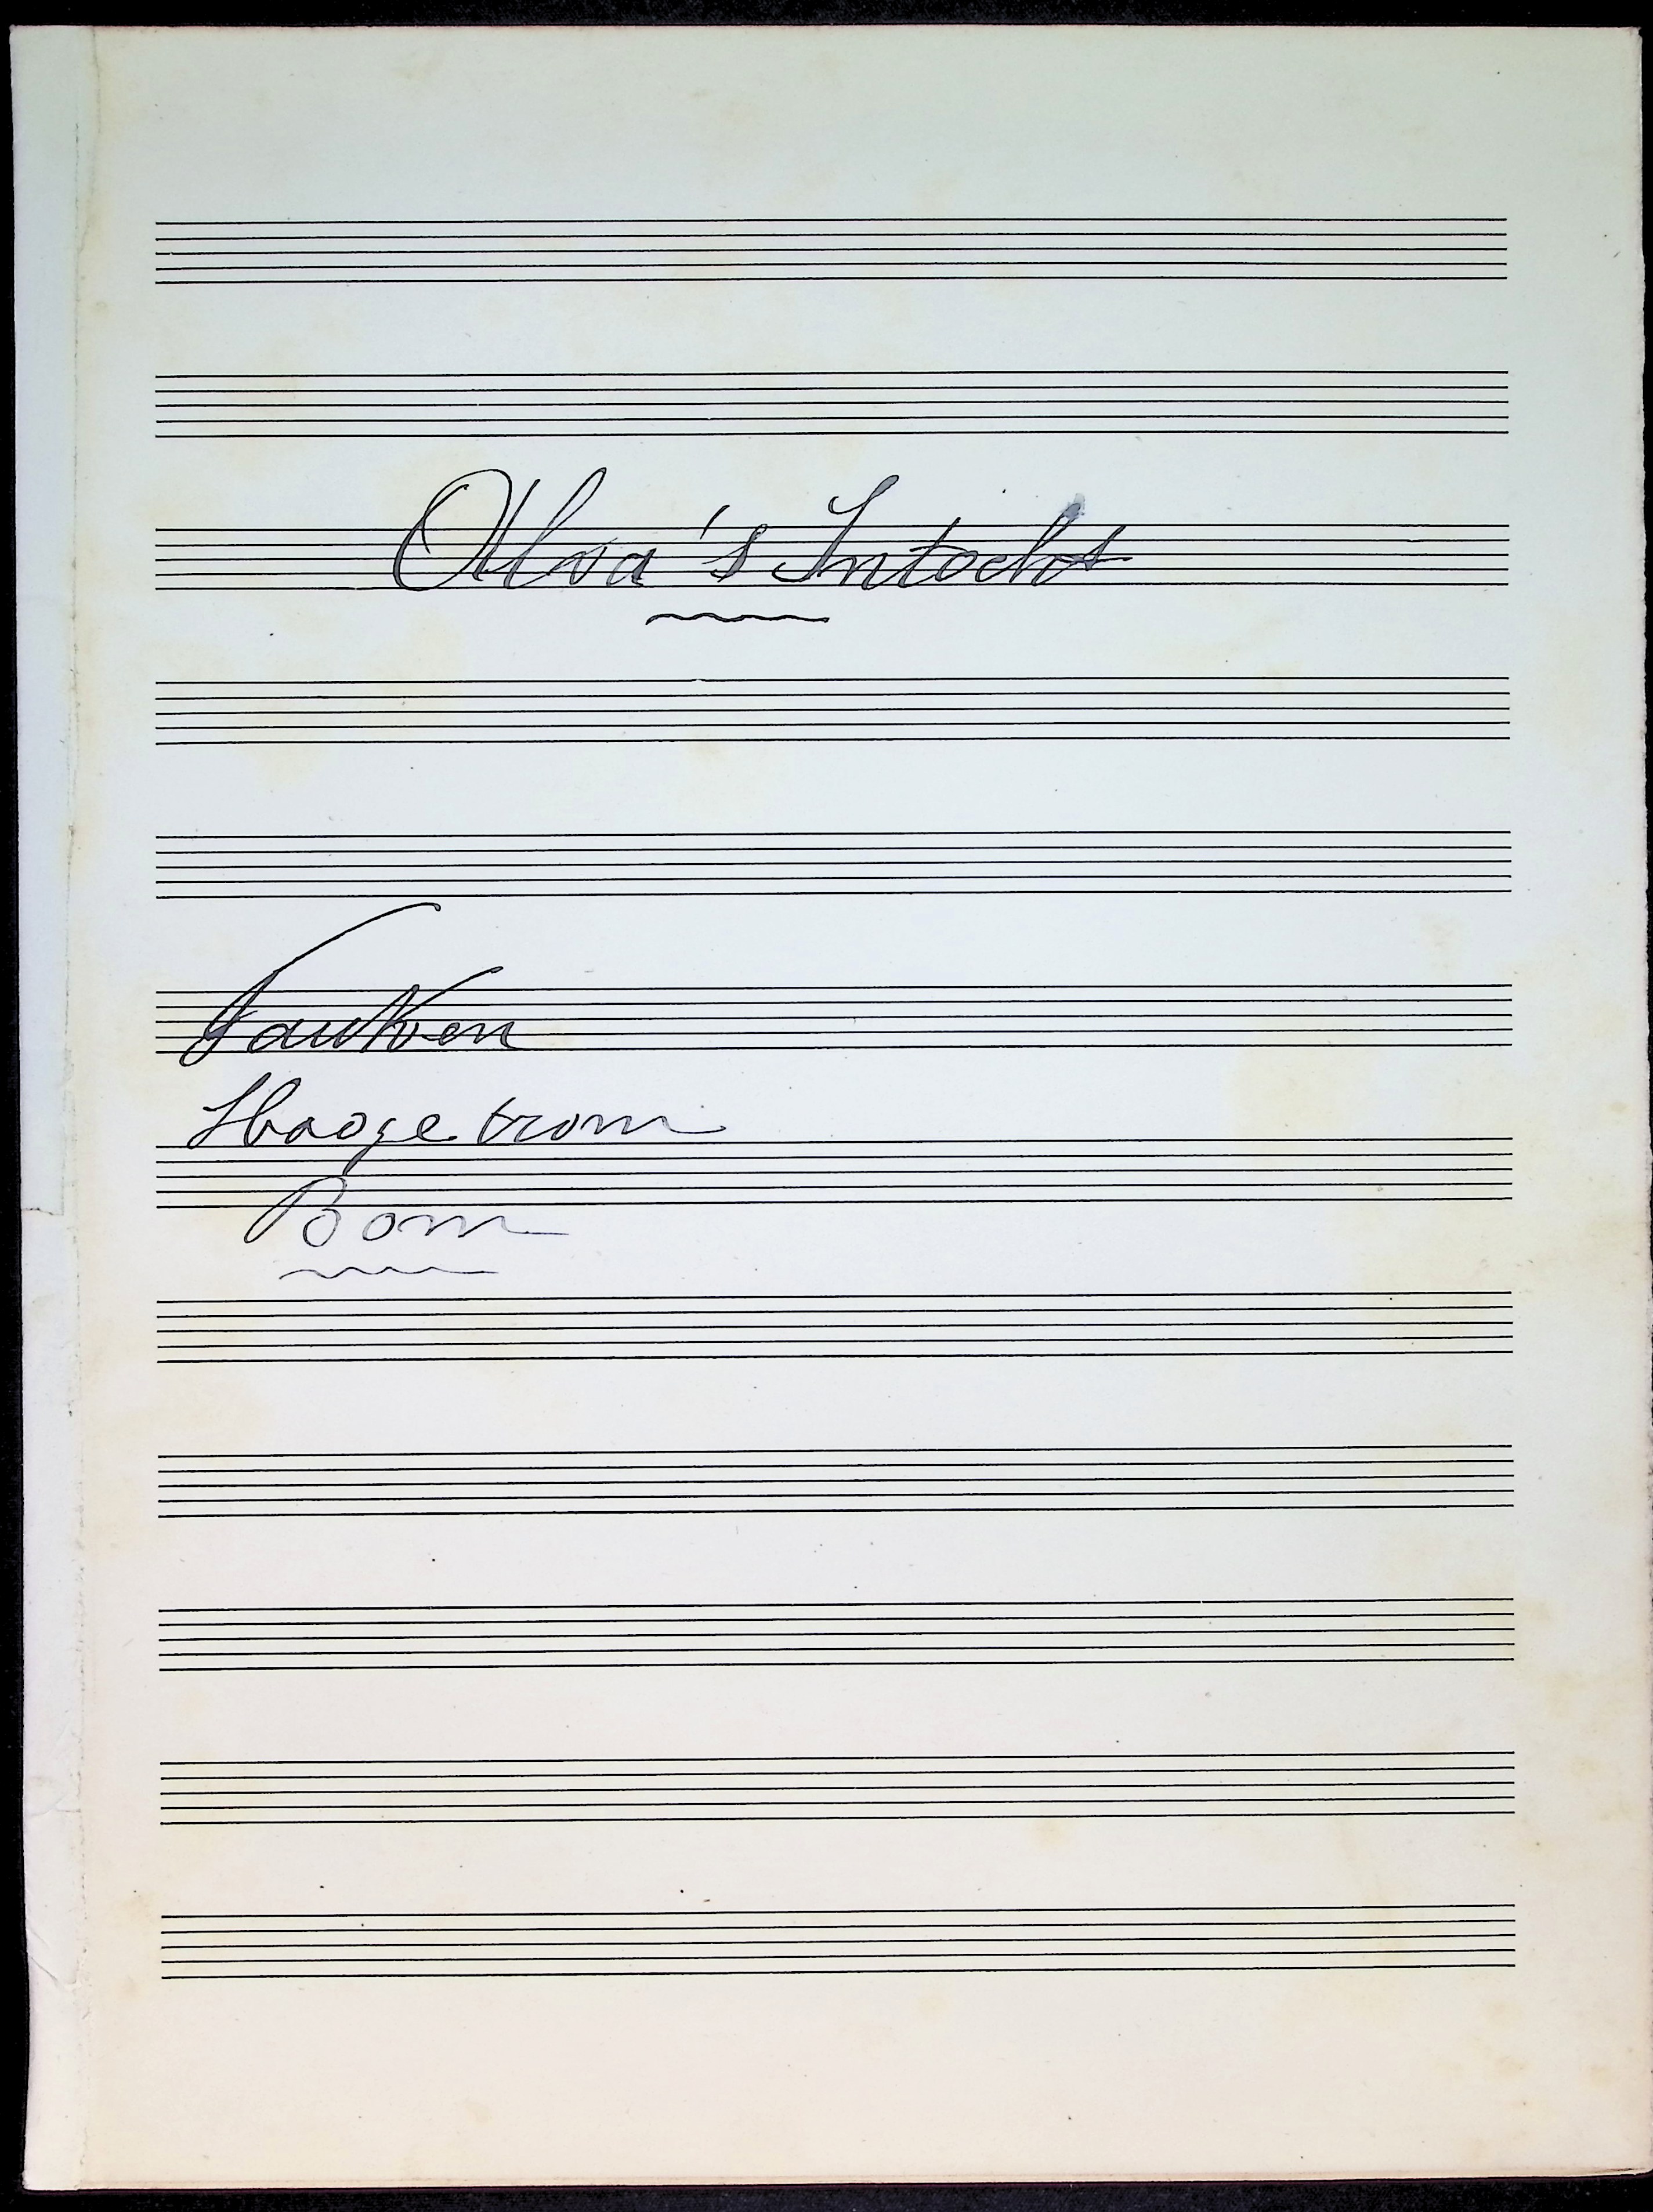 Alva's Intocht
Pauken
Hooge trom
Bom